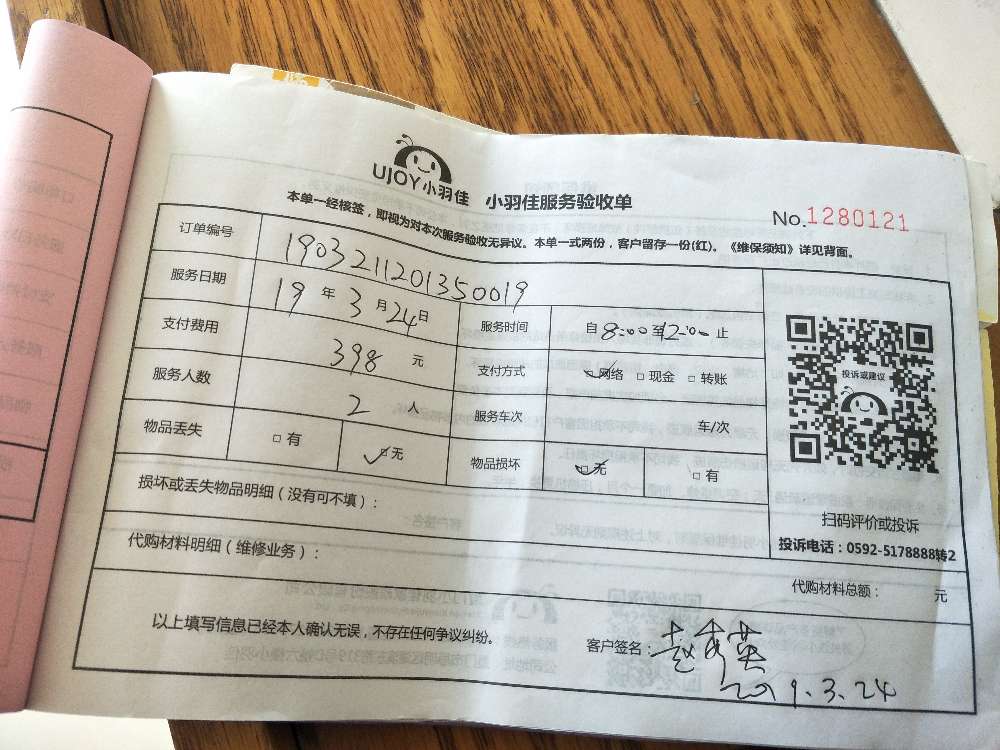 UJOY小羽佳 小羽佳服务验收单
No.1280121
本单一经核签，即视为对本次服务验收无异议。本单一式两份，客户留存一份(红)。《维保须知》详见背面。
订单编号 1903211201350019
服务日期 19 年 3 月 24 日 服务时间 自 8:00 至 12:00 止
支付费用 398 元 支付方式 □网络 □现金 □转账
服务人数 2 人 服务车次 车/次
物品丢失 □有 □无 物品损坏 □无 □有
投诉或建议
损坏或丢失物品明细（没有可不填）：
扫码评价或投诉
代购材料明细（维修业务）：
投诉电话：0592-5178888转2
代购材料总额： 元
以上填写信息已经本人确认无误，不存在任何争议纠纷。
客户签名：赵秀英
2019.3.24